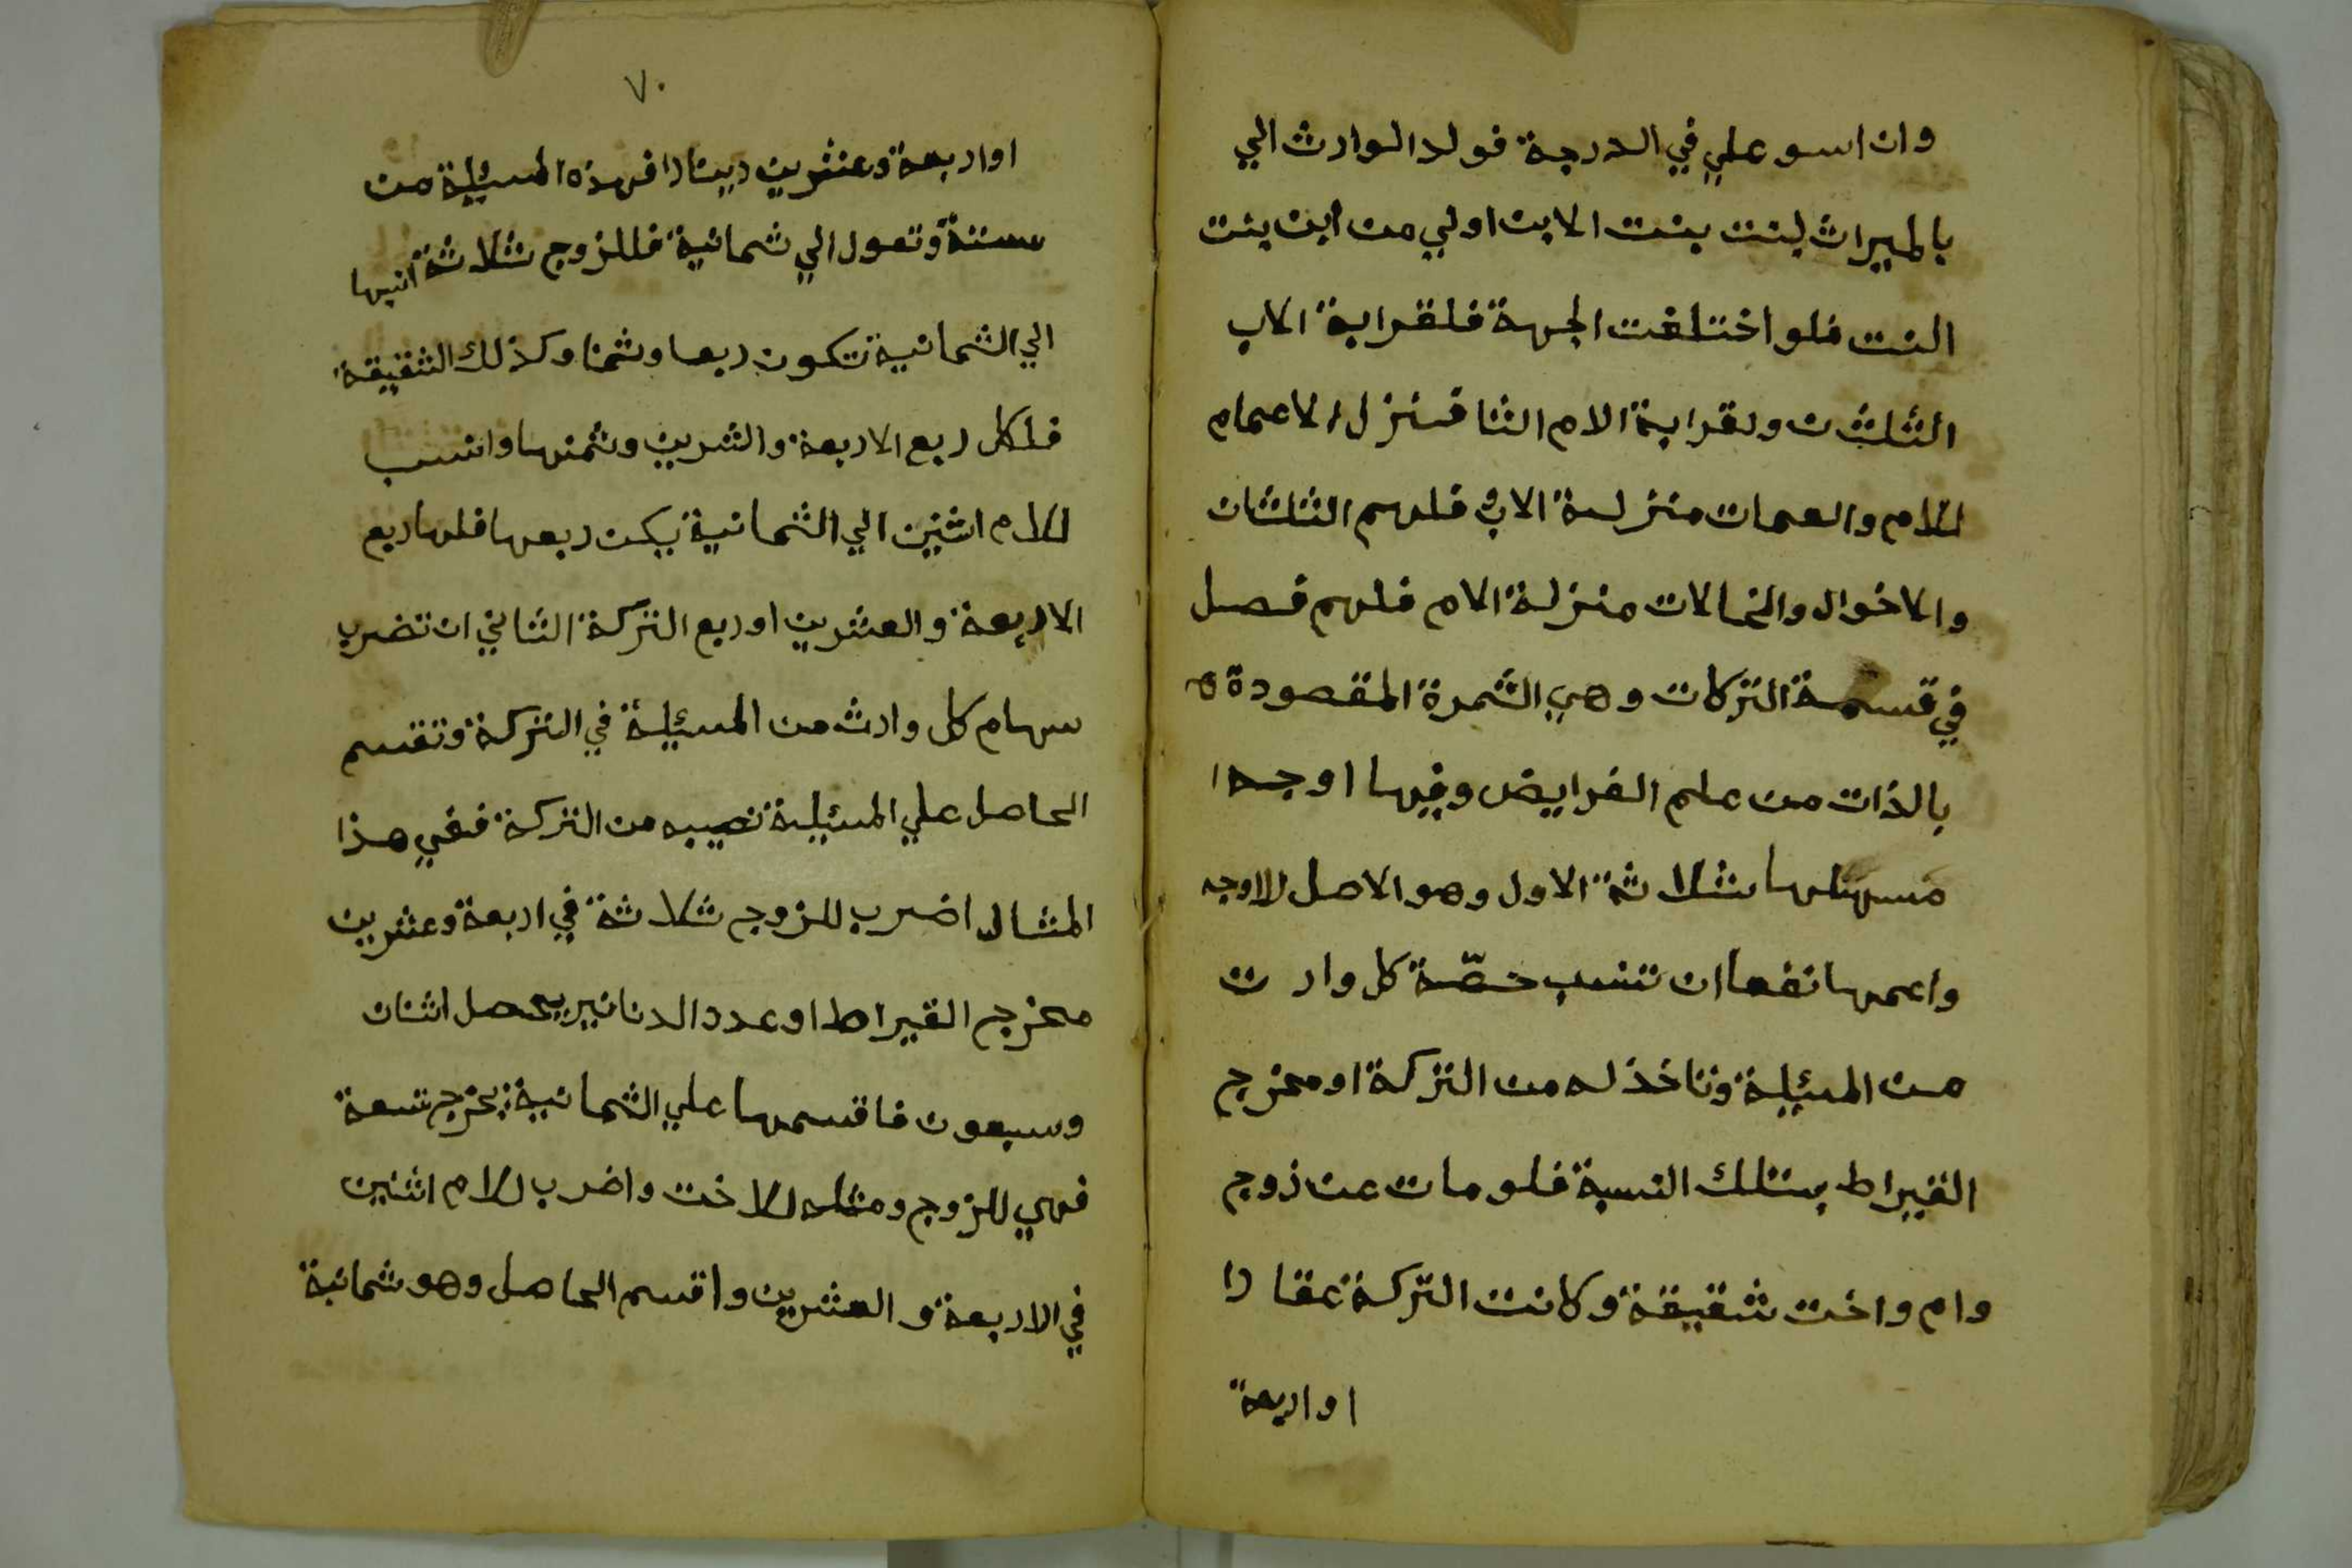 وان اسو علي في الدرجة فولد الوارث الي
بالميراث لبنت بنت الابن اولي من ابن بنت
البنت فلو اختلفت الجهة فلقرابة الاب
الثلثان ولقرابة الام الثنا فتنزل الاعمام
للام والعمات منزلة الاب فلهم الثلثان
والاخوال والخالات منزلة الام فلهم فصل
في قسمة التركات وهي الثمرة المقصودة
بالذات من علم الفرايض وفيها اوجه
ثلاثة الاول وهو الاصل للاوجه
واعمها نفعا ان تنسب حصّة كل وارت
من المسئيلة وتاخذ له من التركة او مخرج
القيراط بتلك النسبة فلو مات عن زوج
وام واخت شقيقة وكانت التركة عقارا
او اربعة
٧٠
او اربعة وعشرين دينارا فهذه المسئيلة من
ستة وتعول الي ثمانية فللزوج ثلاثة انبها
الي الثمانية تكون ربعا وثمنا وكذلك الشقيقة
فلكل ربع الاربعة والشرين وثمنها وانسب
للام اثنين الي الثمانية يكن ربعها فلها ربع
الاربعة والعشرين او ربع التركة الثاني ان تضرب
سهام كل وارث من المسئيلة في التركة وتقسم
الحاصل علي المسئيلة نصيبه من التركة ففي هذا
المثال اضرب للزوج ثلاثة في اربعة وعشرين
مخرج القيراط او عدد الدنانير يحصل اثنان
وسبعون فاقسمها علي الثمانية يخرج تسعة
فهي للزوج ومثله للاخت واضرب للام اثنين
في الاربعة والعشرين واقسم الحاصل وهو ثمانية